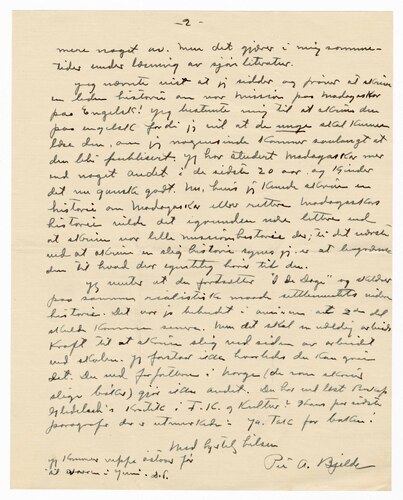 - 2 -
mere noget av. Men det gjører i mig somme-
tider under læsning av sjøn literatur.
Jeg nævnte vist at jeg sidder og prøver at skrive
en liden historie om vor mission paa Madagaskar
paa Engelsk! Jeg bestemte mig til at skrive den
paa engelsk fordi jeg vil at de unge skal kunne
læse den, om jeg nogensinde kommer saalangt at
den blir publisert. Jeg har studert Madagaskar mer
end noget andet i de sidste 20 aar, og kjender
det nu ganske godt. Nu, hvis jeg kunde skrive en
historie om Madagaskar eller rettere Madagaskars
historie vilde det igrunden være lettere end
at skrive vor lille missionshistorie der, ti det værste
ved at skrive en slig historie synes jeg er at begrænse
den til hvad der egentlig hører til den.
Jeg venter at du fortsætter "I de Dage" og skildrer
paa samme realistiske maade settlementets videre
historie. Det var jo bebudet i avisen at 2den del
skulde komme senere. Men det skal en uldig arbeids
kraft til at skrive slig ved siden av arbeidet
ved skolen. Jeg forstaar ikke hvorledes du kan greie
det. De ved forfattere i Norge (de som skrive
slige bøker) gjør ikke andet. Du har vel læst
kritik i F. K. og Kultur? Hans par sidste
paragrafer er utmerket. Ja, Tak for boken!
Med hjertelig hilsen
Per A. Bjelde
Jeg kommer neppe østover før
til i Juni. D.S.